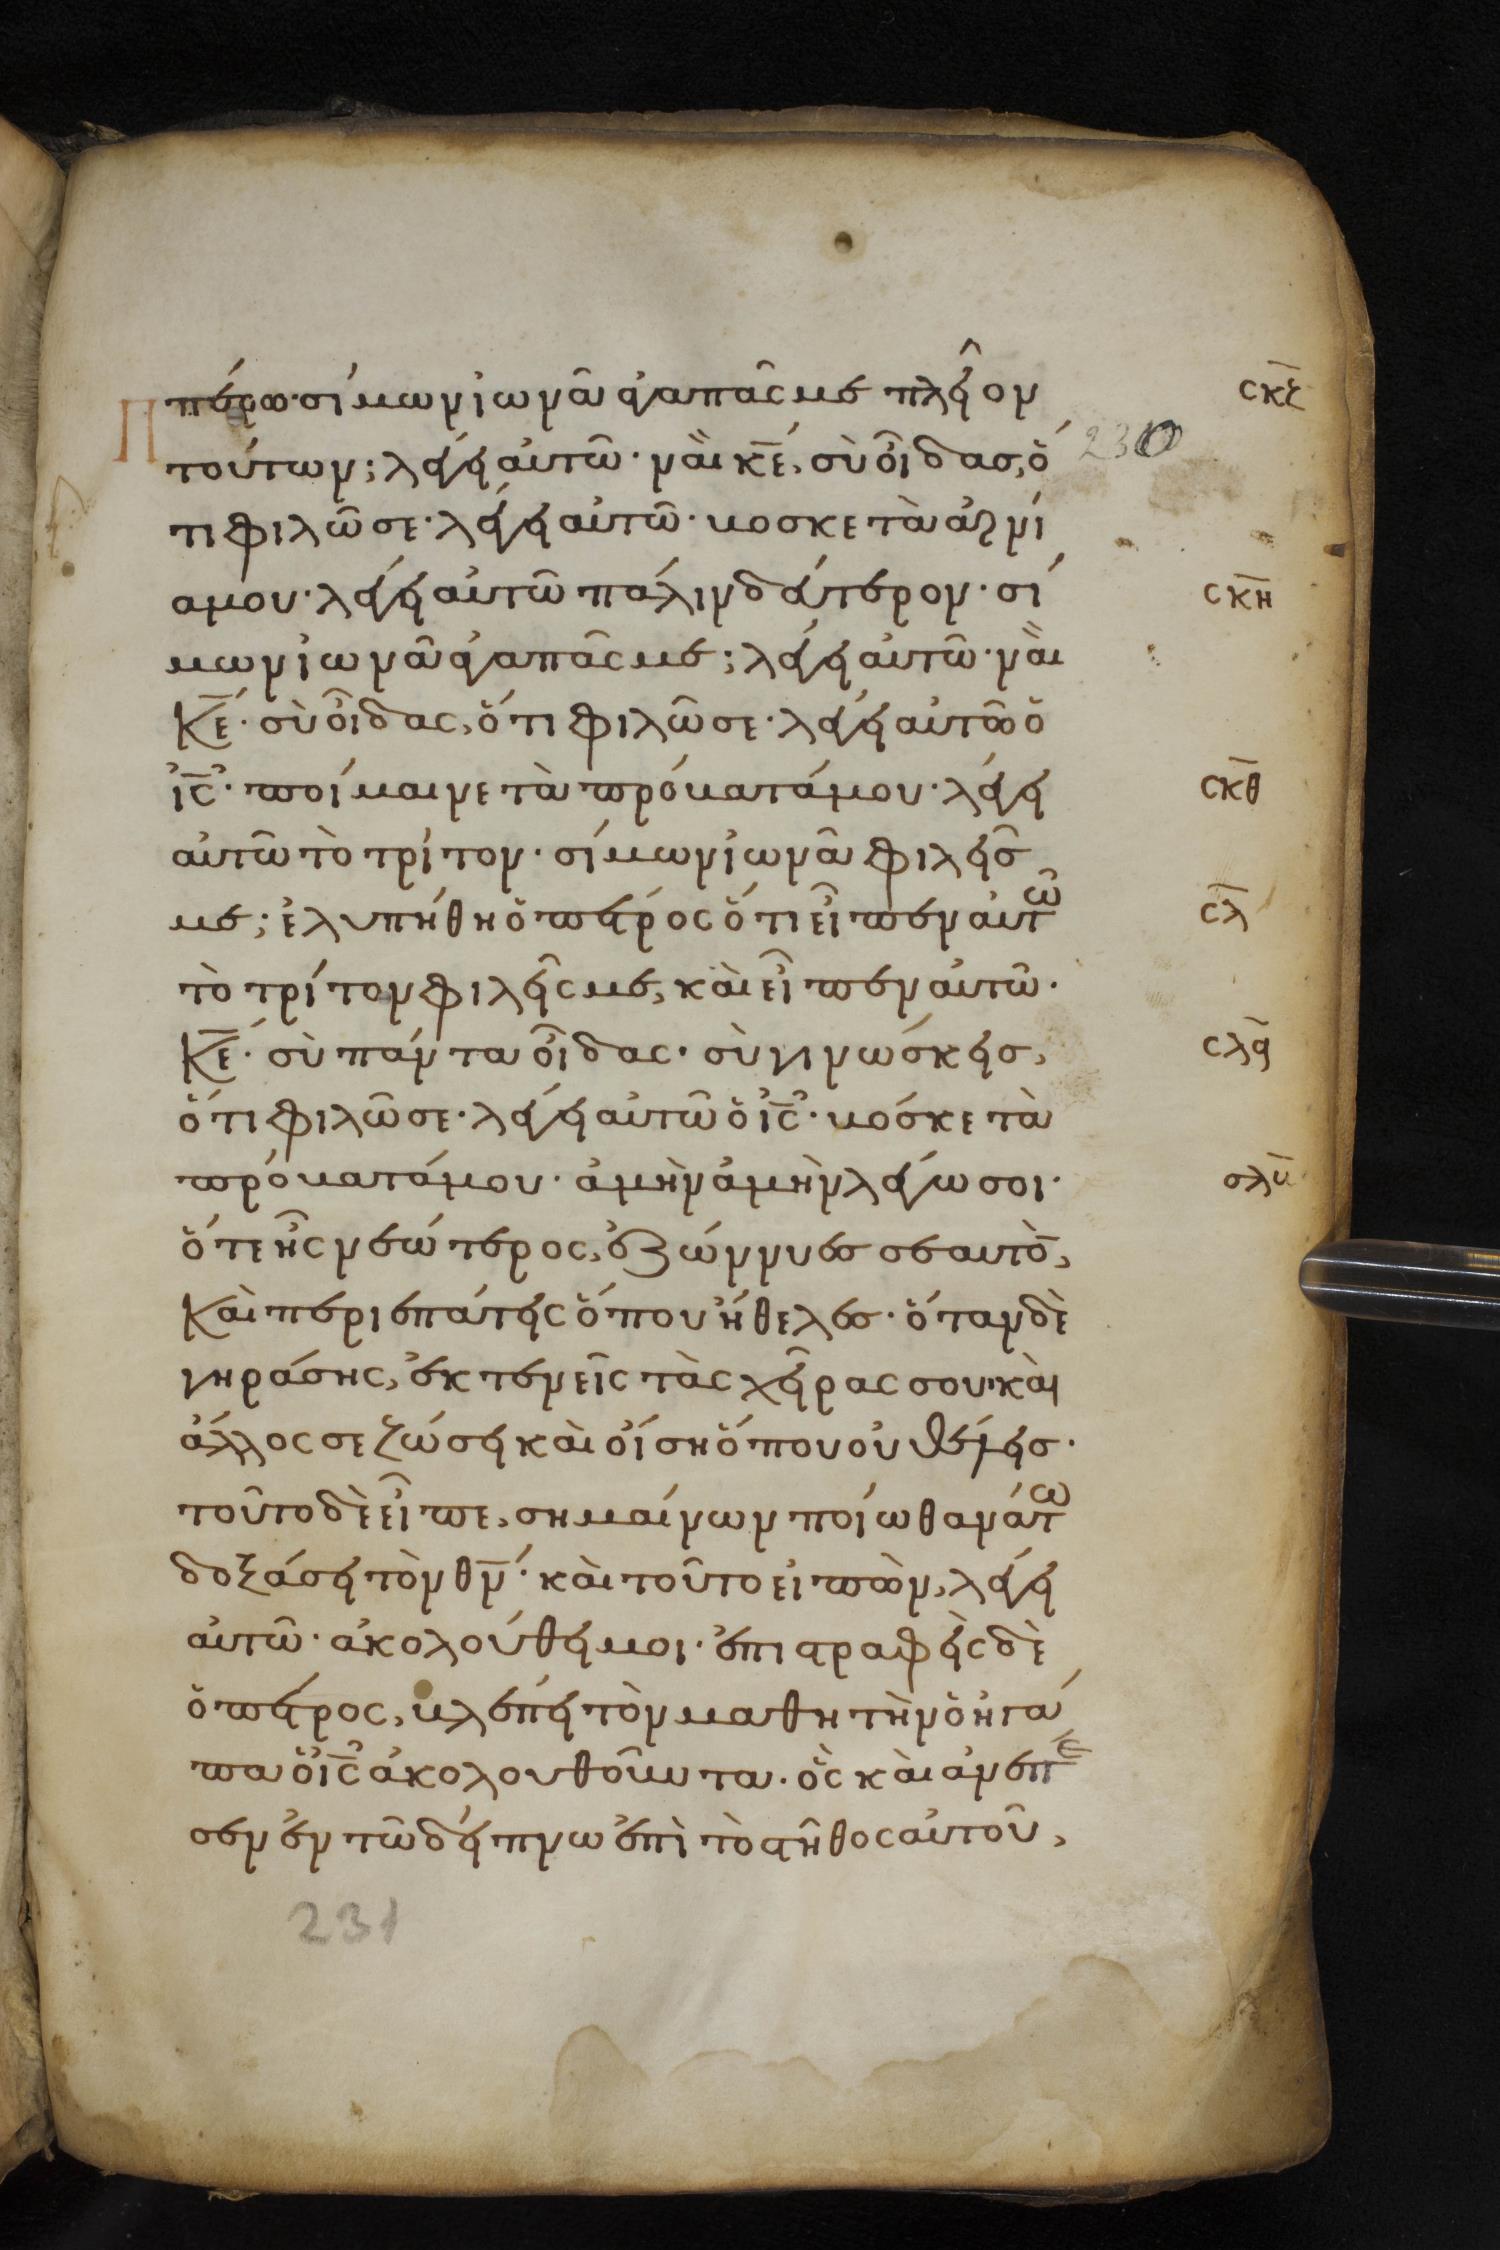 πέτρω· σίμων ἰωνᾶ ἀγαπᾶς με πλεῖον
σκζ
τούτων; λέγει αὐτῶ· ναὶ κε̄, σὺ οἶδας, ὅ
230
τι φιλῶ σε· λέγει αὐτῶ· βοσκε τὰ ἀρνί
α μου· λέγει αὐτῶ πάλιν δεύτερον· σί
σκη
μων ἰωνᾶ ἀγαπᾶς με; λέγει αὐτῶ· ναὶ
Κε̄· σὺ οἶδας, ὅτι φιλῶ σε· λέγει αὐτῶ ὁ
ις̄· ποίμαινε τὰ πρόβατά μου· λέγει
σκθ
αὐτῶ τὸ τρίτον· σίμων ἰωνᾶ φιλεῖσ
με; ἐλυπήθη ὁ πέτρος ὅτι εἶπεν αὐτῶ
σλ
τὸ τρίτον φιλεῖς με, καὶ εἶπεν αὐτῶ·
Κε̄· σὺ πάντα οἶδας· σὺ γινώσκεισ,
σλα
ὅτι φιλῶ σε· λέγει αὐτῶ ὁ ις̄· βόσκε τὰ
πρόβατά μου· ἀμὴν ἀμὴν λέγω σοι·
σλβ
ὅτε ἦς νεώτερος, ἐζώννυες σεαυτὸ̄,
Καὶ περιεπάτεις ὅπου ἤθελες· ὅταν δὲ
γηράσης, ἐκτενεῖς τὰς χεῖρας σου· καὶ
ἄλλος σε ζώσει καὶ οἴση ὅπου οὐ θέλεισ·
τοῦτο δὲ εἶπε, σημαίνων ποίω θανάτω
δοξάσει τὸν θν̄· καὶ τοῦτο εἰπὼν, λέγει
αὐτῶ· ἀκολούθει μοι· ἐπιστραφεὶς δὲ
ὁ πέτρος, βλέπει τὸν μαθητὴν ὃν ἠγά
πα ὁ ις̄ ἀκολουθοῦντα· ὃς καὶ ἀνέπε
σεν ἐν τῶ δείπνω ἐπὶ τὸ στῆθος αὐτοῦ,
231